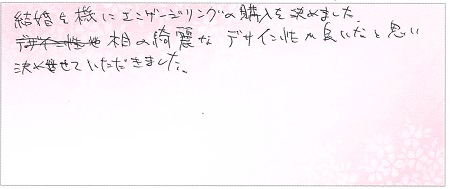 結婚を機にエンゲージリングの購入を決めました。
相の綺麗なデザイン性が良いだと思い
決めさせていただきました。